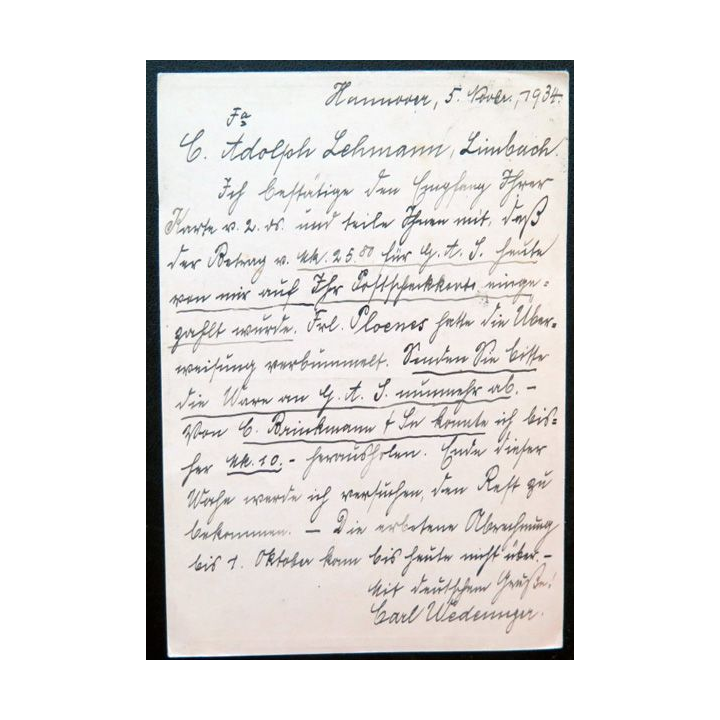 Hannover, 5. Novbr. 1934.
Fa
C. Adolph Lehmann, Limbach.
Ich bestätige den Empfang Ihrer
Karte v. 2. ds. und teile Ihnen mit, daß
der Betrag v. Mk. 25.80 für G. A. S. heute
von mir auf Ihr Postscheckkonto einge-
zahlt wurde. Frl. Ploenes hatte die Über-
weisung verbummelt. Senden Sie bitte
die Ware an G. A. S. nunmehr ab. –
Von C. Brinkmann & Sn konnte ich bis-
her Mk. 10.– herausholen. Ende dieser
Woche werde ich versuchen, den Rest zu
bekommen. – Die erbetene Abrechnung
bis 1. Oktober kam bis heute nicht über. –
Mit deutschem Gruße!
Carl